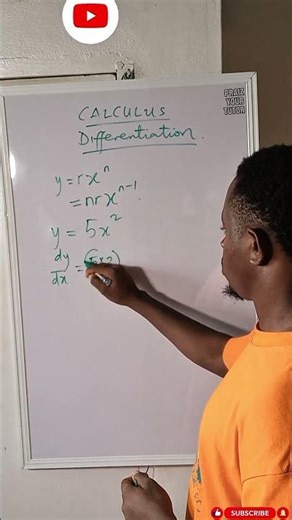 PRAIZ
YOUR
TUTOR
CALCULUS
Differentiation.
y = rxⁿ
= nrxⁿ⁻¹.
y = 5x²
dy/dx = (5x2)
SUBSCRIBE